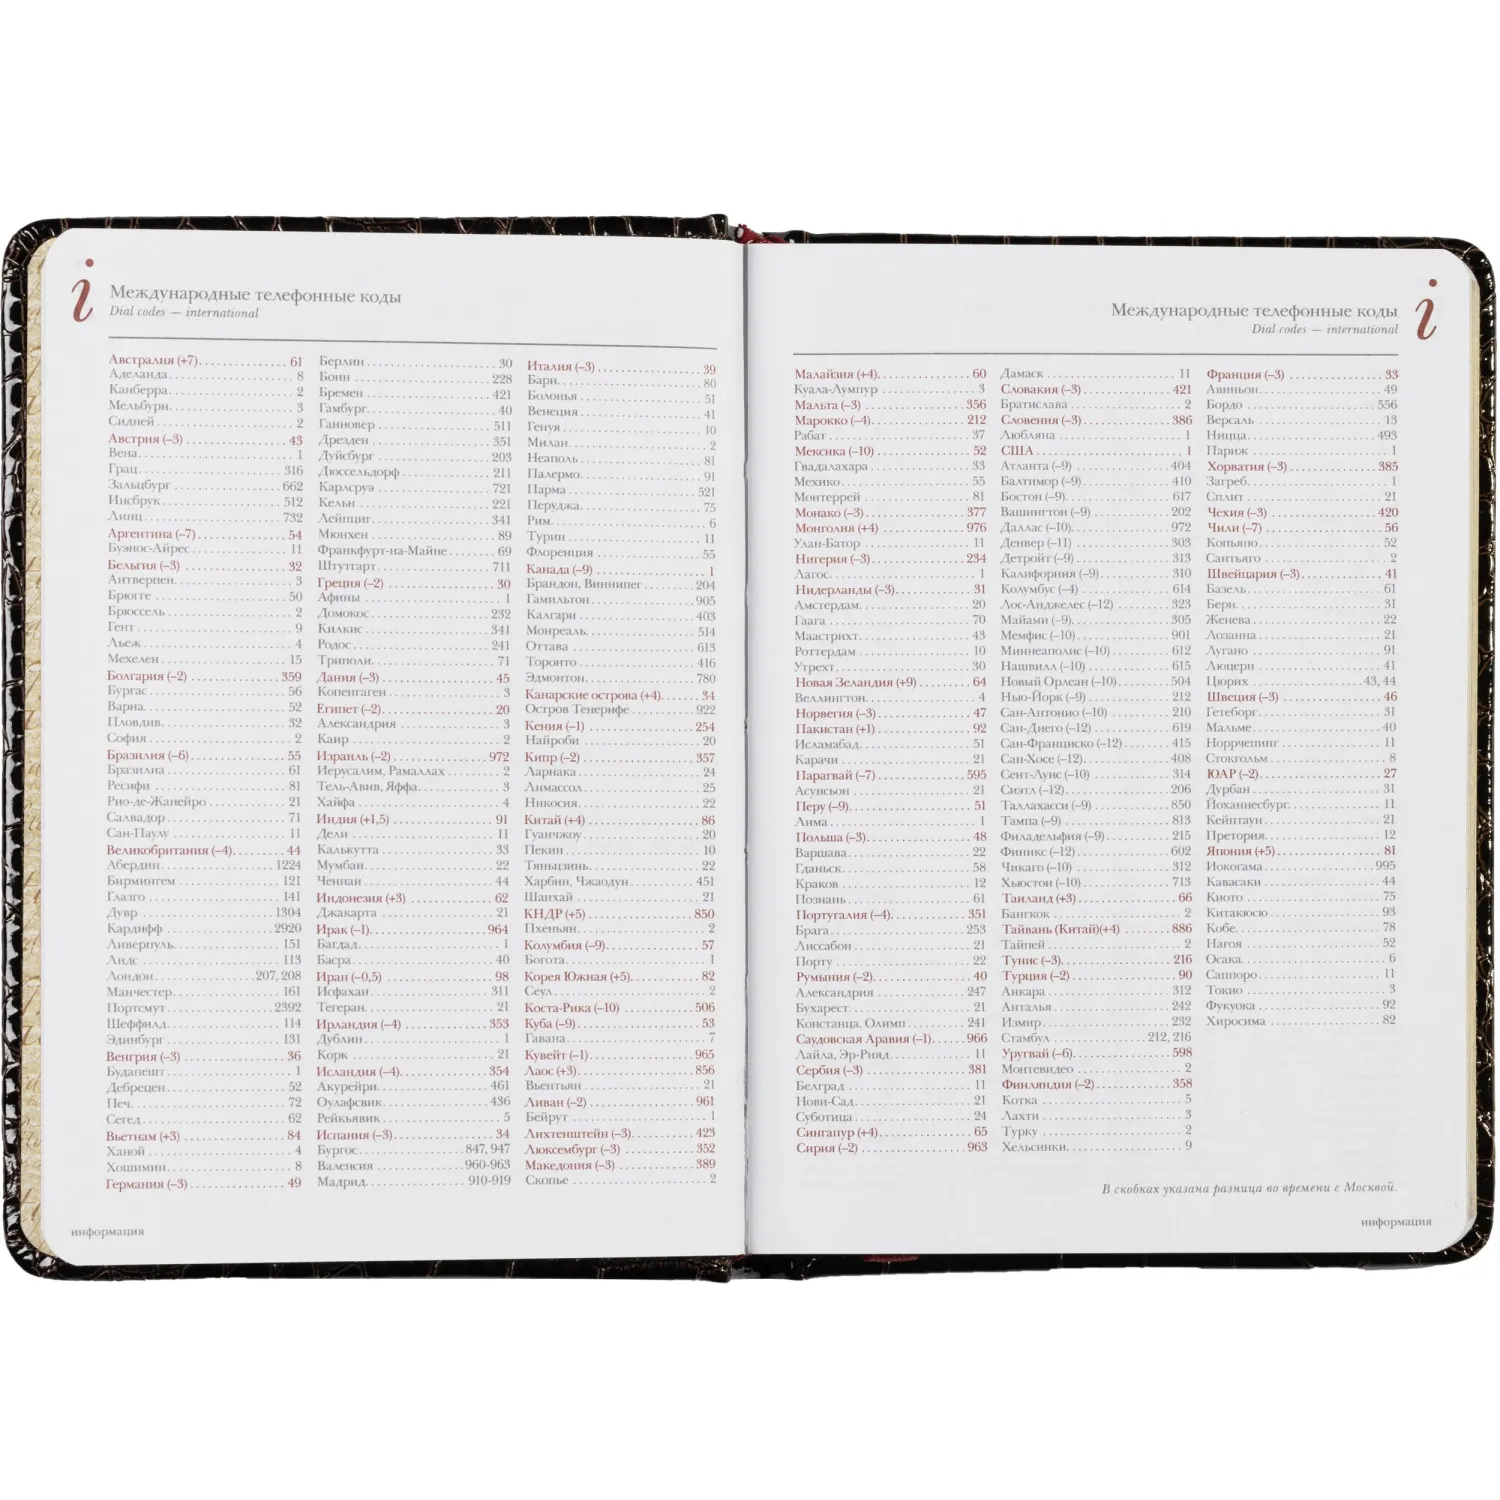 i
Международные телефонные коды
Dial codes — international
Австралия (+7) 61
Аделаида 8
Канберра 2
Мельбурн 3
Сидней 2
Австрия (–3) 43
Вена 1
Грац 316
Зальцбург 662
Инсбрук 512
Линц 732
Аргентина (–7) 54
Буэнос-Айрес 11
Бельгия (–3) 32
Антверпен 3
Брюгге 50
Брюссель 2
Гент 9
Льеж 4
Мехелен 15
Болгария (–2) 359
Бургас 56
Варна 52
Пловдив 32
София 2
Бразилия (–6) 55
Бразилиа 61
Ресифи 81
Рио-де-Жанейро 21
Салвадор 71
Сан-Паулу 11
Великобритания (–4) 44
Абердин 1224
Бирмингем 121
Глазго 141
Дувр 1304
Кардифф 2920
Ливерпуль 151
Лидс 113
Лондон 207, 208
Манчестер 161
Портсмут 2392
Шеффилд 114
Эдинбург 131
Венгрия (–3) 36
Будапешт 1
Дебрецен 52
Печ 72
Сегед 62
Вьетнам (+3) 84
Ханой 4
Хошимин 8
Германия (–3) 49
Берлин 30
Бонн 228
Бремен 421
Гамбург 40
Ганновер 511
Дрезден 351
Дуйсбург 203
Дюссельдорф 211
Карлсруэ 721
Кельн 221
Лейпциг 341
Мюнхен 89
Франкфурт-на-Майне 69
Штутгарт 711
Греция (–2) 30
Афины 1
Домокос 232
Килкис 341
Родос 241
Триполи 71
Дания (–3) 45
Копенгаген 3
Египет (–2) 20
Александрия 3
Каир 2
Израиль (–2) 972
Иерусалим, Рамаллах 2
Тель-Авив, Яффа 3
Хайфа 4
Индия (+1,5) 91
Дели 11
Калькутта 33
Мумбаи 22
Ченнаи 44
Индонезия (+3) 62
Джакарта 21
Ирак (–1) 964
Багдад 1
Басра 40
Иран (–0,5) 98
Исфахан 311
Тегеран 21
Ирландия (–4) 353
Дублин 1
Корк 21
Исландия (–4) 354
Акурейри 461
Оулафсвик 436
Рейкьявик 5
Испания (–3) 34
Бургос 847, 947
Валенсия 960-963
Мадрид 910-919
Италия (–3) 39
Бари 80
Болонья 51
Венеция 41
Генуя 10
Милан 2
Неаполь 81
Палермо 91
Парма 521
Перуджа 75
Рим 6
Турин 11
Флоренция 55
Канада (–9) 1
Брандон, Виннипег 204
Гамильтон 905
Калгари 403
Монреаль 514
Оттава 613
Торонто 416
Эдмонтон 780
Канарские острова (+4) 34
Остров Тенерифе 922
Кения (–1) 254
Найроби 20
Кипр (–2) 357
Ларнака 24
Лимассол 25
Никосия 22
Китай (+4) 86
Гуанчжоу 20
Пекин 10
Тяньзинь 22
Харбин, Чжаодун 451
Шанхай 21
КНДР (+5) 850
Пхеньян 2
Колумбия (–9) 57
Богота 1
Корея Южная (+5) 82
Сеул 2
Коста-Рика (–10) 506
Куба (–9) 53
Гавана 7
Кувейт (–1) 965
Лаос (+3) 856
Вьентьян 21
Ливан (–2) 961
Бейрут 1
Лихтенштейн (–3) 423
Люксембург (–3) 352
Македония (–3) 389
Скопье 2
информация
i
Международные телефонные коды
Dial codes — international
Малайзия (+4) 60
Куала-Лумпур 3
Мальта (–3) 356
Марокко (–4) 212
Рабат 37
Мексика (–10) 52
Гвадалахара 33
Мехико 55
Монтеррей 81
Монако (–3) 377
Монголия (+4) 976
Улан-Батор 11
Нигерия (–3) 234
Лагос 1
Нидерланды (–3) 31
Амстердам 20
Гаага 70
Маастрихт 43
Роттердам 10
Утрехт 30
Новая Зеландия (+9) 64
Веллингтон 4
Норвегия (–3) 47
Пакистан (+1) 92
Исламабад 51
Карачи 21
Парагвай (–7) 595
Асунсьон 21
Перу (–9) 51
Лима 1
Польша (–3) 48
Варшава 22
Гданьск 58
Краков 12
Познань 61
Португалия (–4) 351
Брага 253
Лиссабон 21
Порту 22
Румыния (–2) 40
Александрия 247
Бухарест 21
Констанца, Олимп 241
Саудовская Аравия (–1) 966
Лайла, Эр-Рияд 11
Сербия (–3) 381
Белград 11
Нови-Сад 21
Суботица 24
Сингапур (+4) 65
Сирия (–2) 963
Дамаск 11
Словакия (–3) 421
Братислава 2
Словения (–3) 386
Любляна 1
США 1
Атланта (–9) 404
Балтимор (–9) 410
Бостон (–9) 617
Вашингтон (–9) 202
Даллас (–10) 972
Денвер (–11) 303
Детройт (–9) 313
Калифорния (–9) 310
Колумбус (–4) 614
Лос-Анджелес (–12) 323
Майами (–9) 305
Мемфис (–10) 901
Миннеаполис (–10) 612
Нашвилл (–10) 615
Новый Орлеан (–10) 504
Нью-Йорк (–9) 212
Сан-Антонио (–10) 210
Сан-Диего (–12) 619
Сан-Франциско (–12) 415
Сан-Хосе (–12) 408
Сент-Луис (–10) 314
Сиэтл (–12) 206
Таллахасси (–9) 850
Тампа (–9) 813
Филадельфия (–9) 215
Финикс (–12) 602
Чикаго (–10) 312
Хьюстон (–10) 713
Таиланд (+3) 66
Бангкок 2
Тайвань (Китай)(+4) 886
Тайпей 2
Тунис (–3) 216
Турция (–2) 90
Анкара 312
Анталья 242
Измир 232
Стамбул 212, 216
Уругвай (–6) 598
Монтевидео 2
Финляндия (–2) 358
Котка 5
Лахти 3
Турку 2
Хельсинки 9
Франция (–3) 33
Авиньон 49
Бордо 556
Версаль 13
Ницца 493
Париж 1
Хорватия (–3) 385
Загреб 1
Сплит 21
Чехия (–3) 420
Чили (–7) 56
Копьяпо 52
Сантьяго 2
Швейцария (–3) 41
Базель 61
Берн 31
Женева 22
Лозанна 21
Лугано 91
Люцерн 41
Цюрих 43, 44
Швеция (–3) 46
Гетеборг 31
Мальме 40
Норрчепинг 11
Стокгольм 8
ЮАР (–2) 27
Дурбан 31
Йоханнесбург 11
Кейптаун 21
Претория 12
Япония (+5) 81
Иокогама 995
Кавасаки 44
Киото 75
Китакюсю 93
Кобе 78
Нагоя 52
Осака 6
Саппоро 11
Токио 3
Фукуока 92
Хиросима 82
В скобках указана разница во времени с Москвой.
информация